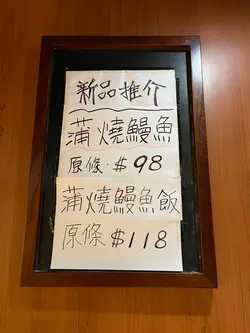 新品推介
蒲燒鰻魚
原條·$98
蒲燒鰻魚飯
原條 $118